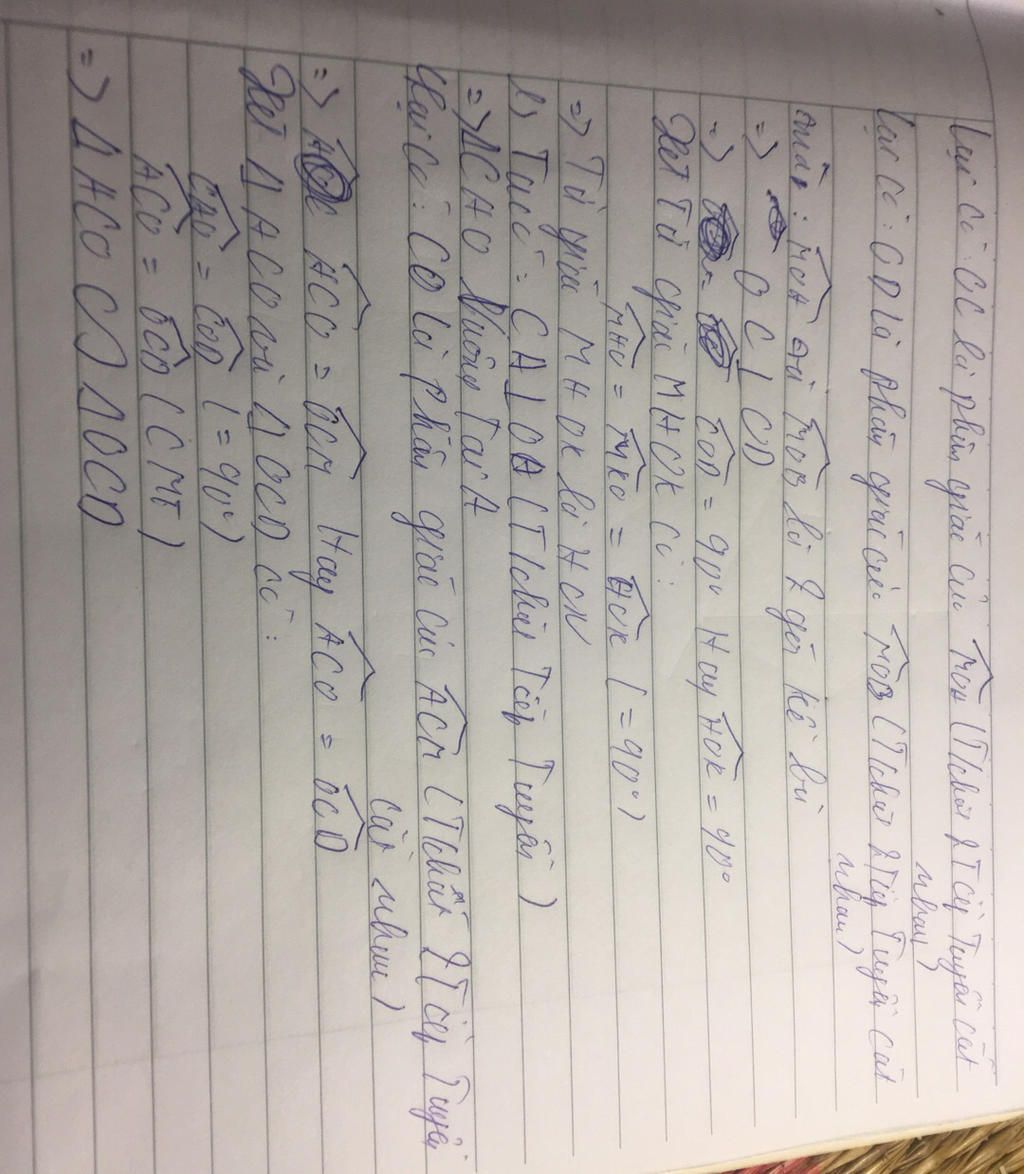 Lại có: OC là phân giác của MOA (T/chất 2 Tiếp Tuyến cắt
nhau)
Lại có: OD là phân giác của MOB (T/chất 2 Tiếp Tuyến cắt
nhau)
mà: MOA và MOB là 2 góc kề bù
=> OC ⊥ OD
=> COD = 90° Hay HOK = 90°
Xét Tứ giác MHOK có:
MHO = MKO = HOK (= 90°)
=> Tứ giác MHOK là HCN
Ta có: CA ⊥ OA (T/chất Tiếp Tuyến)
=> ΔCAO Vuông Tại A
Lại Có: CO là phân giác của ACM (T/chất 2 Tiếp Tuyến
cắt nhau)
=> ACO = OCM Hay ACO = OCD
Xét Δ ACO với Δ OCD có:
CAO = COD (= 90°)
ACO = OCD (CMT)
=> Δ ACO ∽ Δ OCD